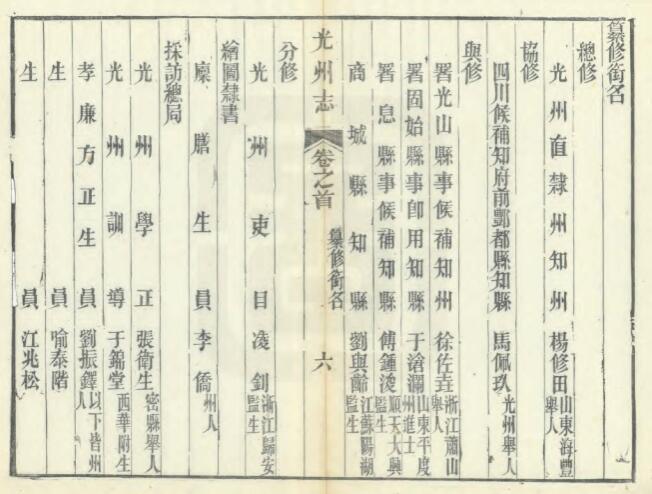 纂修銜名
總修
光州直隸州知州楊修田山東海豐舉人
協修
四川候補知府前酆都縣知縣馬佩玖光州舉人
與修
署光山縣事候補知州徐佐垚浙江蕭山舉人
署固始縣事卽用知縣于滄瀾山東平度州進士
署息縣事候補知縣傅鍾浚順天大興監生
商城縣知縣劉與齡江蘇陽湖監生
光州志
卷之首
纂修銜名
六
分修
光州吏目凌釗浙江歸安監生
繪圖隸書
廩膳生員李僑州人
採訪總局
光州學正張衛生密縣舉人
光州訓導于錦堂西華附生
孝廉方正生員劉振鐸以下皆州人
生員喻泰階
生員江兆松